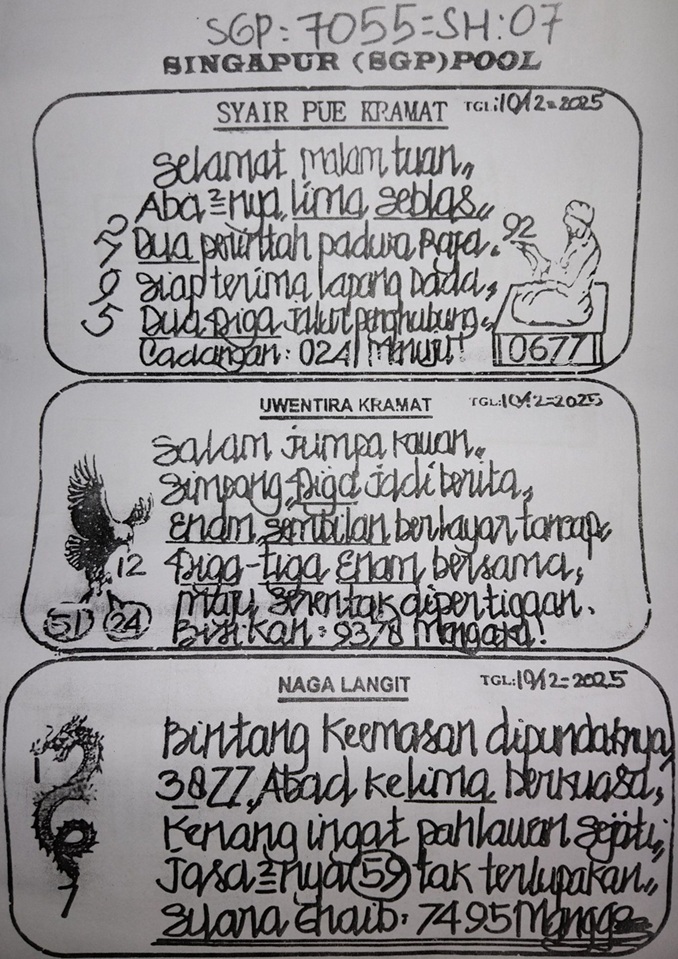 SGP: 7055=SH: 07
SINGAPUR (SGP) POOL
SYAIR PUE KRAMAT TGL: 10/12=2025
Selamat malam tuan,,
Aba²nya, lima seblas,,
Dua perintah padwa Raja.
Siap terima lapang Dada,
Dua Diga Jalur penghubung,
Cadangan: 0241
7
9
5
92
0677
UWENTIRA KRAMAT TGL: 10/12=2025
Salam jumpa kawan,
Simpang Diga jadi berita,
Enam sembilan berlayar tancap,
Diga-tiga Enam bersama,
maju serentak dipertigaan.
Bisikan: 9378
12
51 24
NAGA LANGIT TGL: 10/12=2025
Bintang Keemasan dipundaknya,
3877, Abad kelima berkuasa,
Kenang ingat pahlawan sejati,
Jasa²nya 59 tak terlupakan,,
Suara Ghaib: 7495
1
7